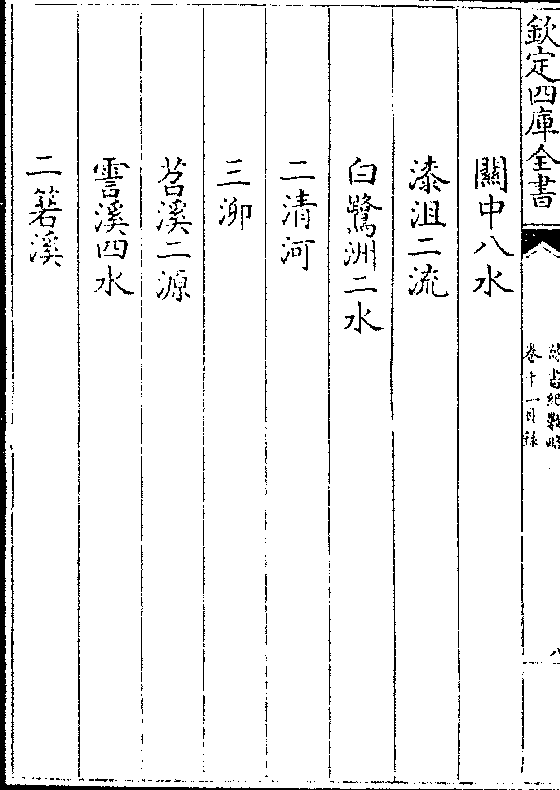 欽定四庫全書
卷十一目錄
關中八水
漆沮二流
白鷺洲二水
二清河
三泖
苕溪二源
霅溪四水
二箬溪